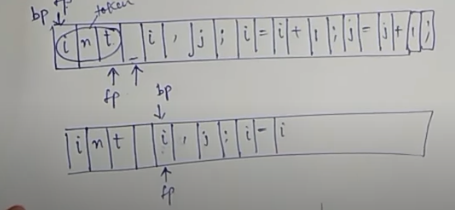 token
bp
i n t _ i , j ; i = i + 1 ; j = j + 1 ;
fp
bp
i n t i , j ; i = i
fp